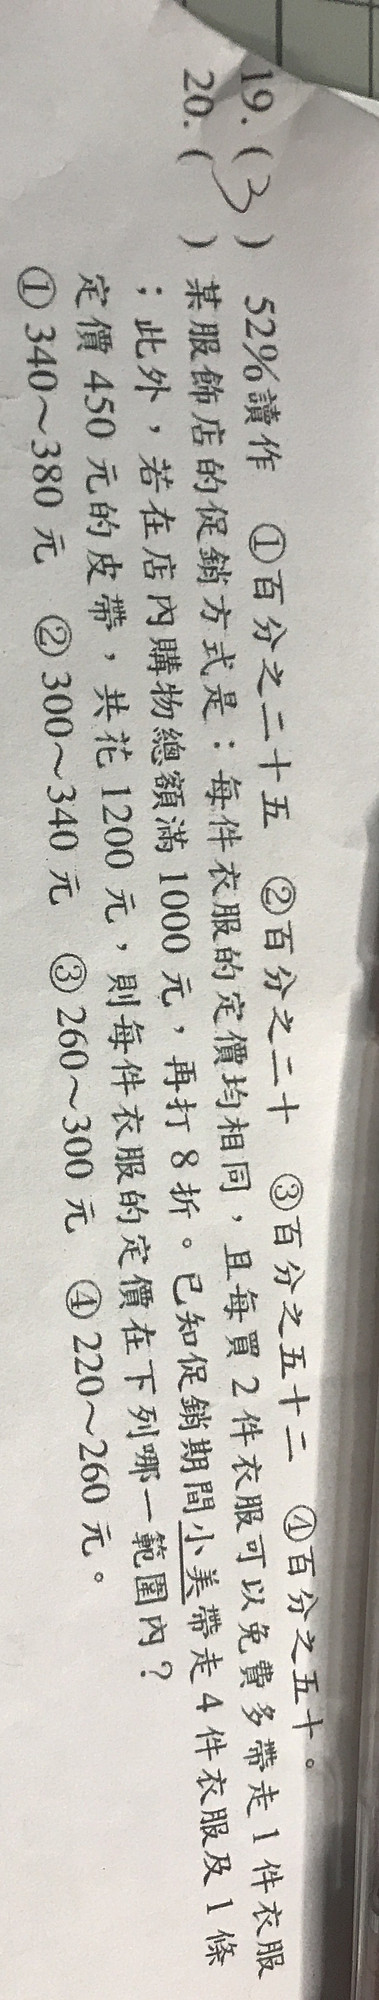 19. ( 3 ) 52%讀作 ①百分之二十五 ②百分之二十 ③百分之五十二 ④百分之五十。
20. ( ) 某服飾店的促銷方式是：每件衣服的定價均相同，且每買 2 件衣服可以免費多帶走 1 件衣服
；此外，若在店內購物總額滿 1000 元，再打 8 折。已知促銷期間小美帶走 4 件衣服及 1 條
定價 450 元的皮帶，共花 1200 元，則每件衣服的定價在下列哪一範圍內？
①340～380 元 ②300～340 元 ③260～300 元 ④220～260 元。